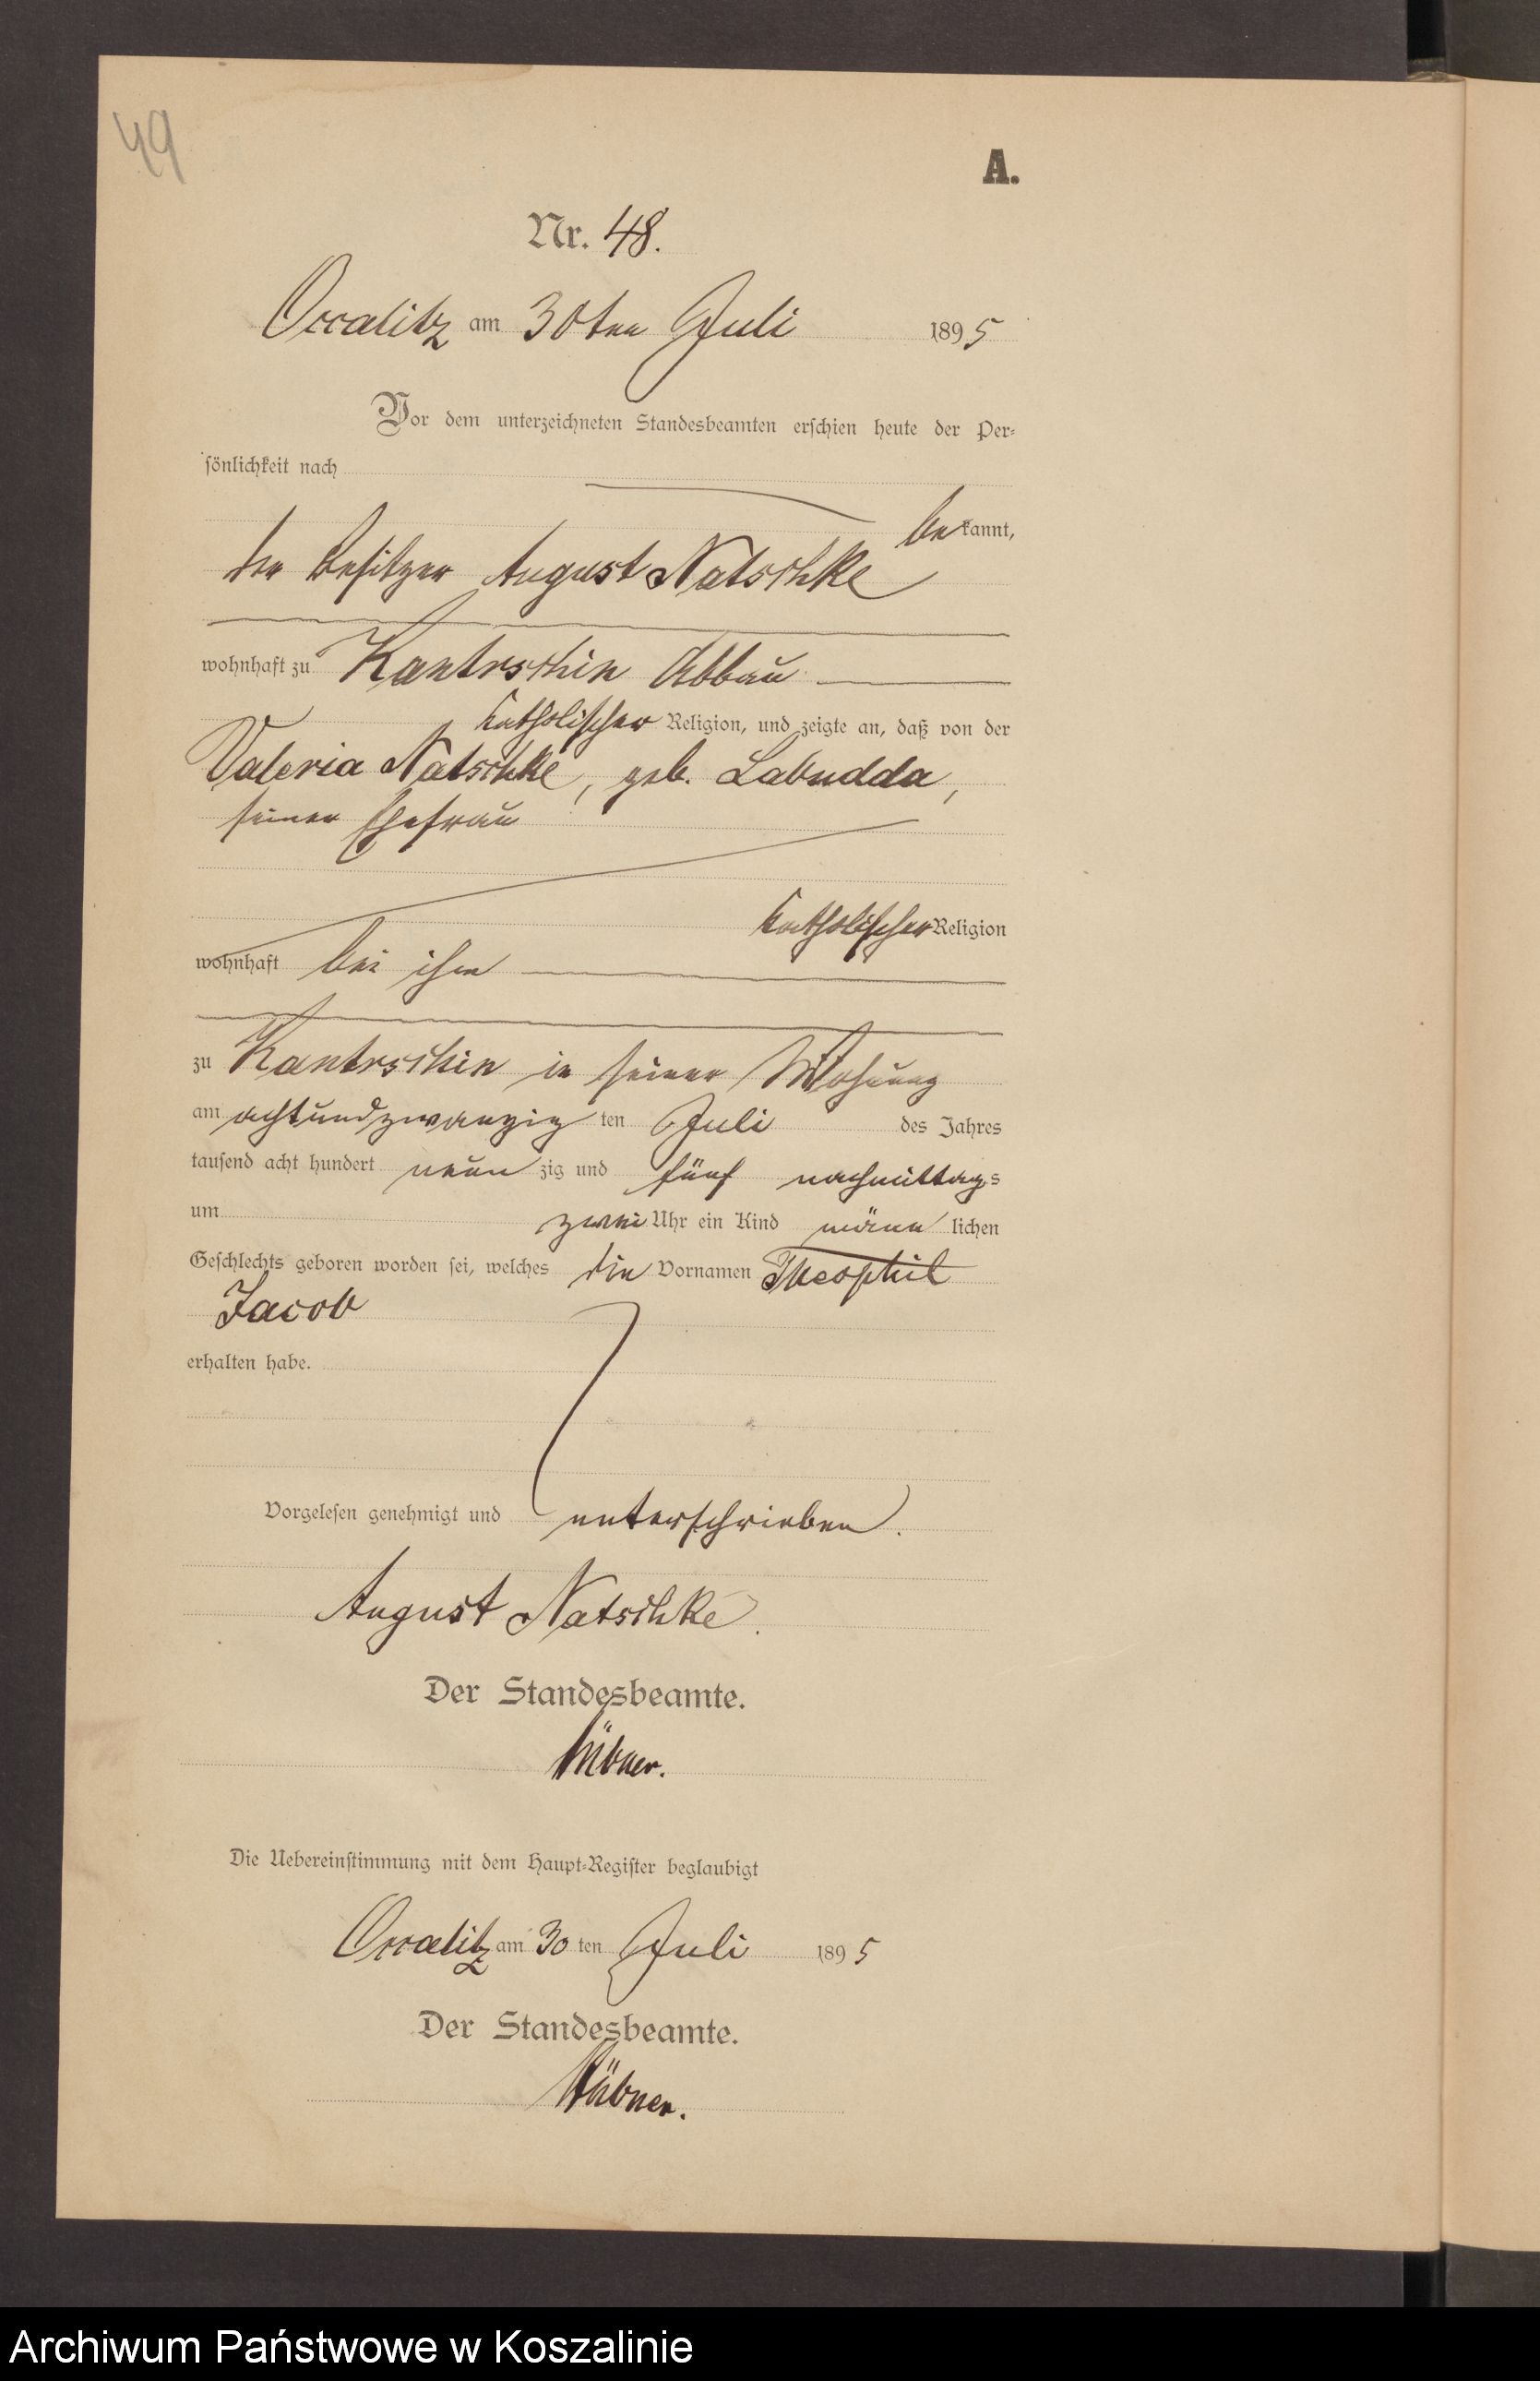 49
A.
Nr. 48.
Occalitz am 30ten Juli 1895
Vor dem unterzeichneten Standesbeamten erschien heute der Per-
sönlichkeit nach
bekannt,
der Besitzer August Natschke
wohnhaft zu Kantrschin Abbau
katholischer Religion, und zeigte an, daß von der
Valeria Natschke, geb. Labudda,
seiner Ehefrau
katholischer Religion
wohnhaft bei ihm
zu Kantrschin in seiner Wohnung
am achtundzwanzig ten Juli des Jahres
tausend acht hundert neun zig und fünf nachmittags
um zwei Uhr ein Kind männ lichen
Geschlechts geboren worden sei, welches die Vornamen Theophil
Jacob
erhalten habe.
Vorgelesen genehmigt und unterschrieben.
August Natschke.
Der Standesbeamte.
Hübner.
Die Uebereinstimmung mit dem Haupt-Register beglaubigt
Occalitz am 30 ten Juli 1895
Der Standesbeamte.
Hübner.
Archiwum Państwowe w Koszalinie